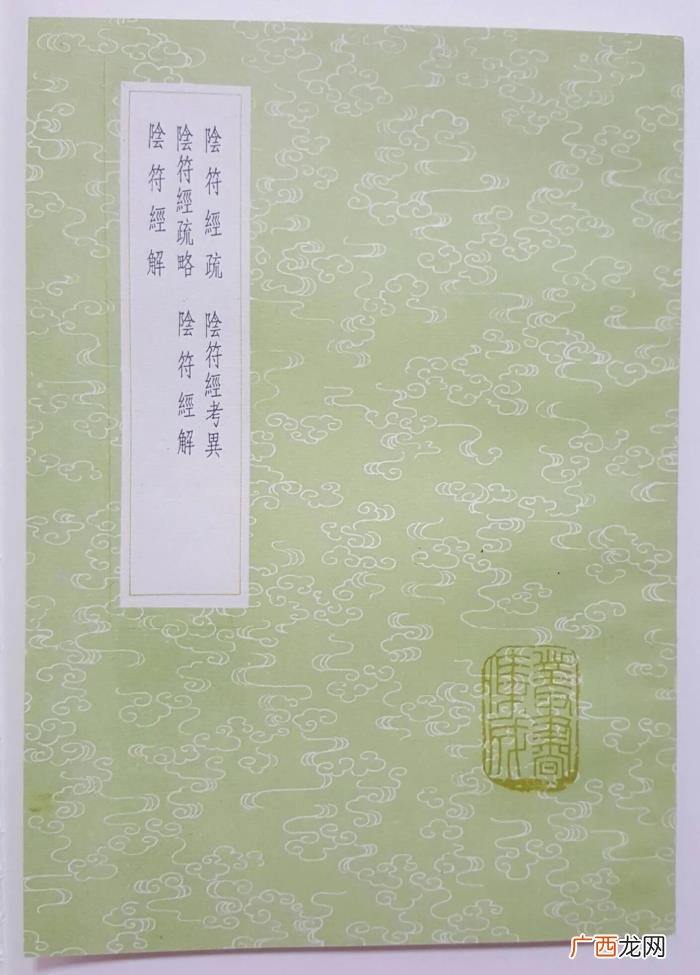 陰符經疏 陰符經考異
陰符經疏略 陰符經解
陰符經解
叢書
集成
广西龙网